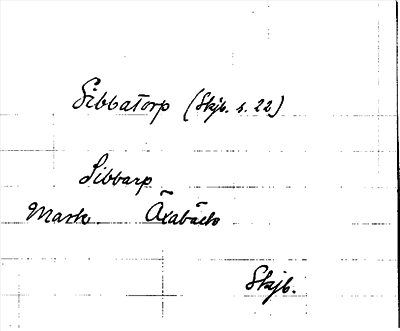 Sibbatorp (Skjb. s. 22)
Sibbarp
Mark Öxabäck
Skjb.